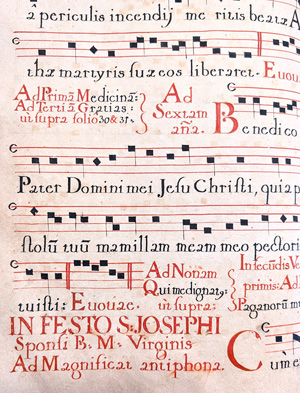 a periculis incendij me ritis beatæ A
thæ martyris suæ eos liberaret. Euou
Ad Primã Medicinã:
Ad Tertiã Gratias:
ut supra folio 30 & 31.
Ad
Sextam
ana.
Benedico
Pater Domini mei Jesu Christi, quia p
stolũ tuũ mamillam meam meo pectori
tuisti: Euouae.
Ad Nonam
Qui me dignat9:
ut supra:
In secūdis V
primis: Ad
Paganorū m
IN FESTO S: JOSEPHI
Sponsi B. M. Virginis
Ad Magnificat antiphona.
Cum e